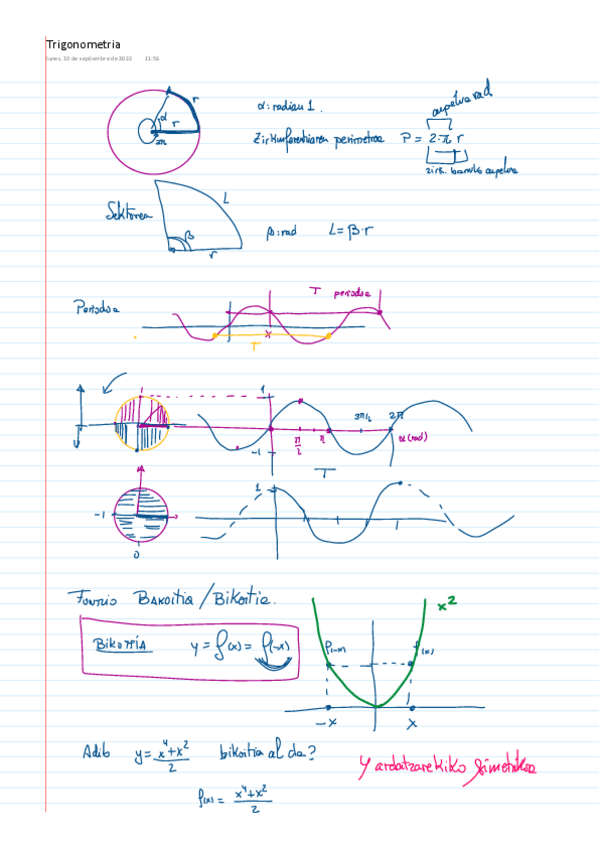 Trigonometria
lunes, 19 de septiembre de 2022 11:56
α: radian 1.
r
α
r
2π
angelua rad
Zirkunferentziaren perimetroa P = 2·π r
zirk. barruko angelua
Sektorea
L
β
r
β: rad L = β·r
Periodoa
T periodoa
x
T
1
-1
π/2
π
3π/2
2π
α (rad)
T
1
-1
0
Funtzio Bakoitia / Bikoitia.
x²
Bikoitia y = f(x) = f(-x)
f(-x)
f(x)
-x
x
Adib y = x⁴+x²/2 bikoitia al da?
Y ardatzarekiko simetrikoa
f(x) = x⁴+x²/2